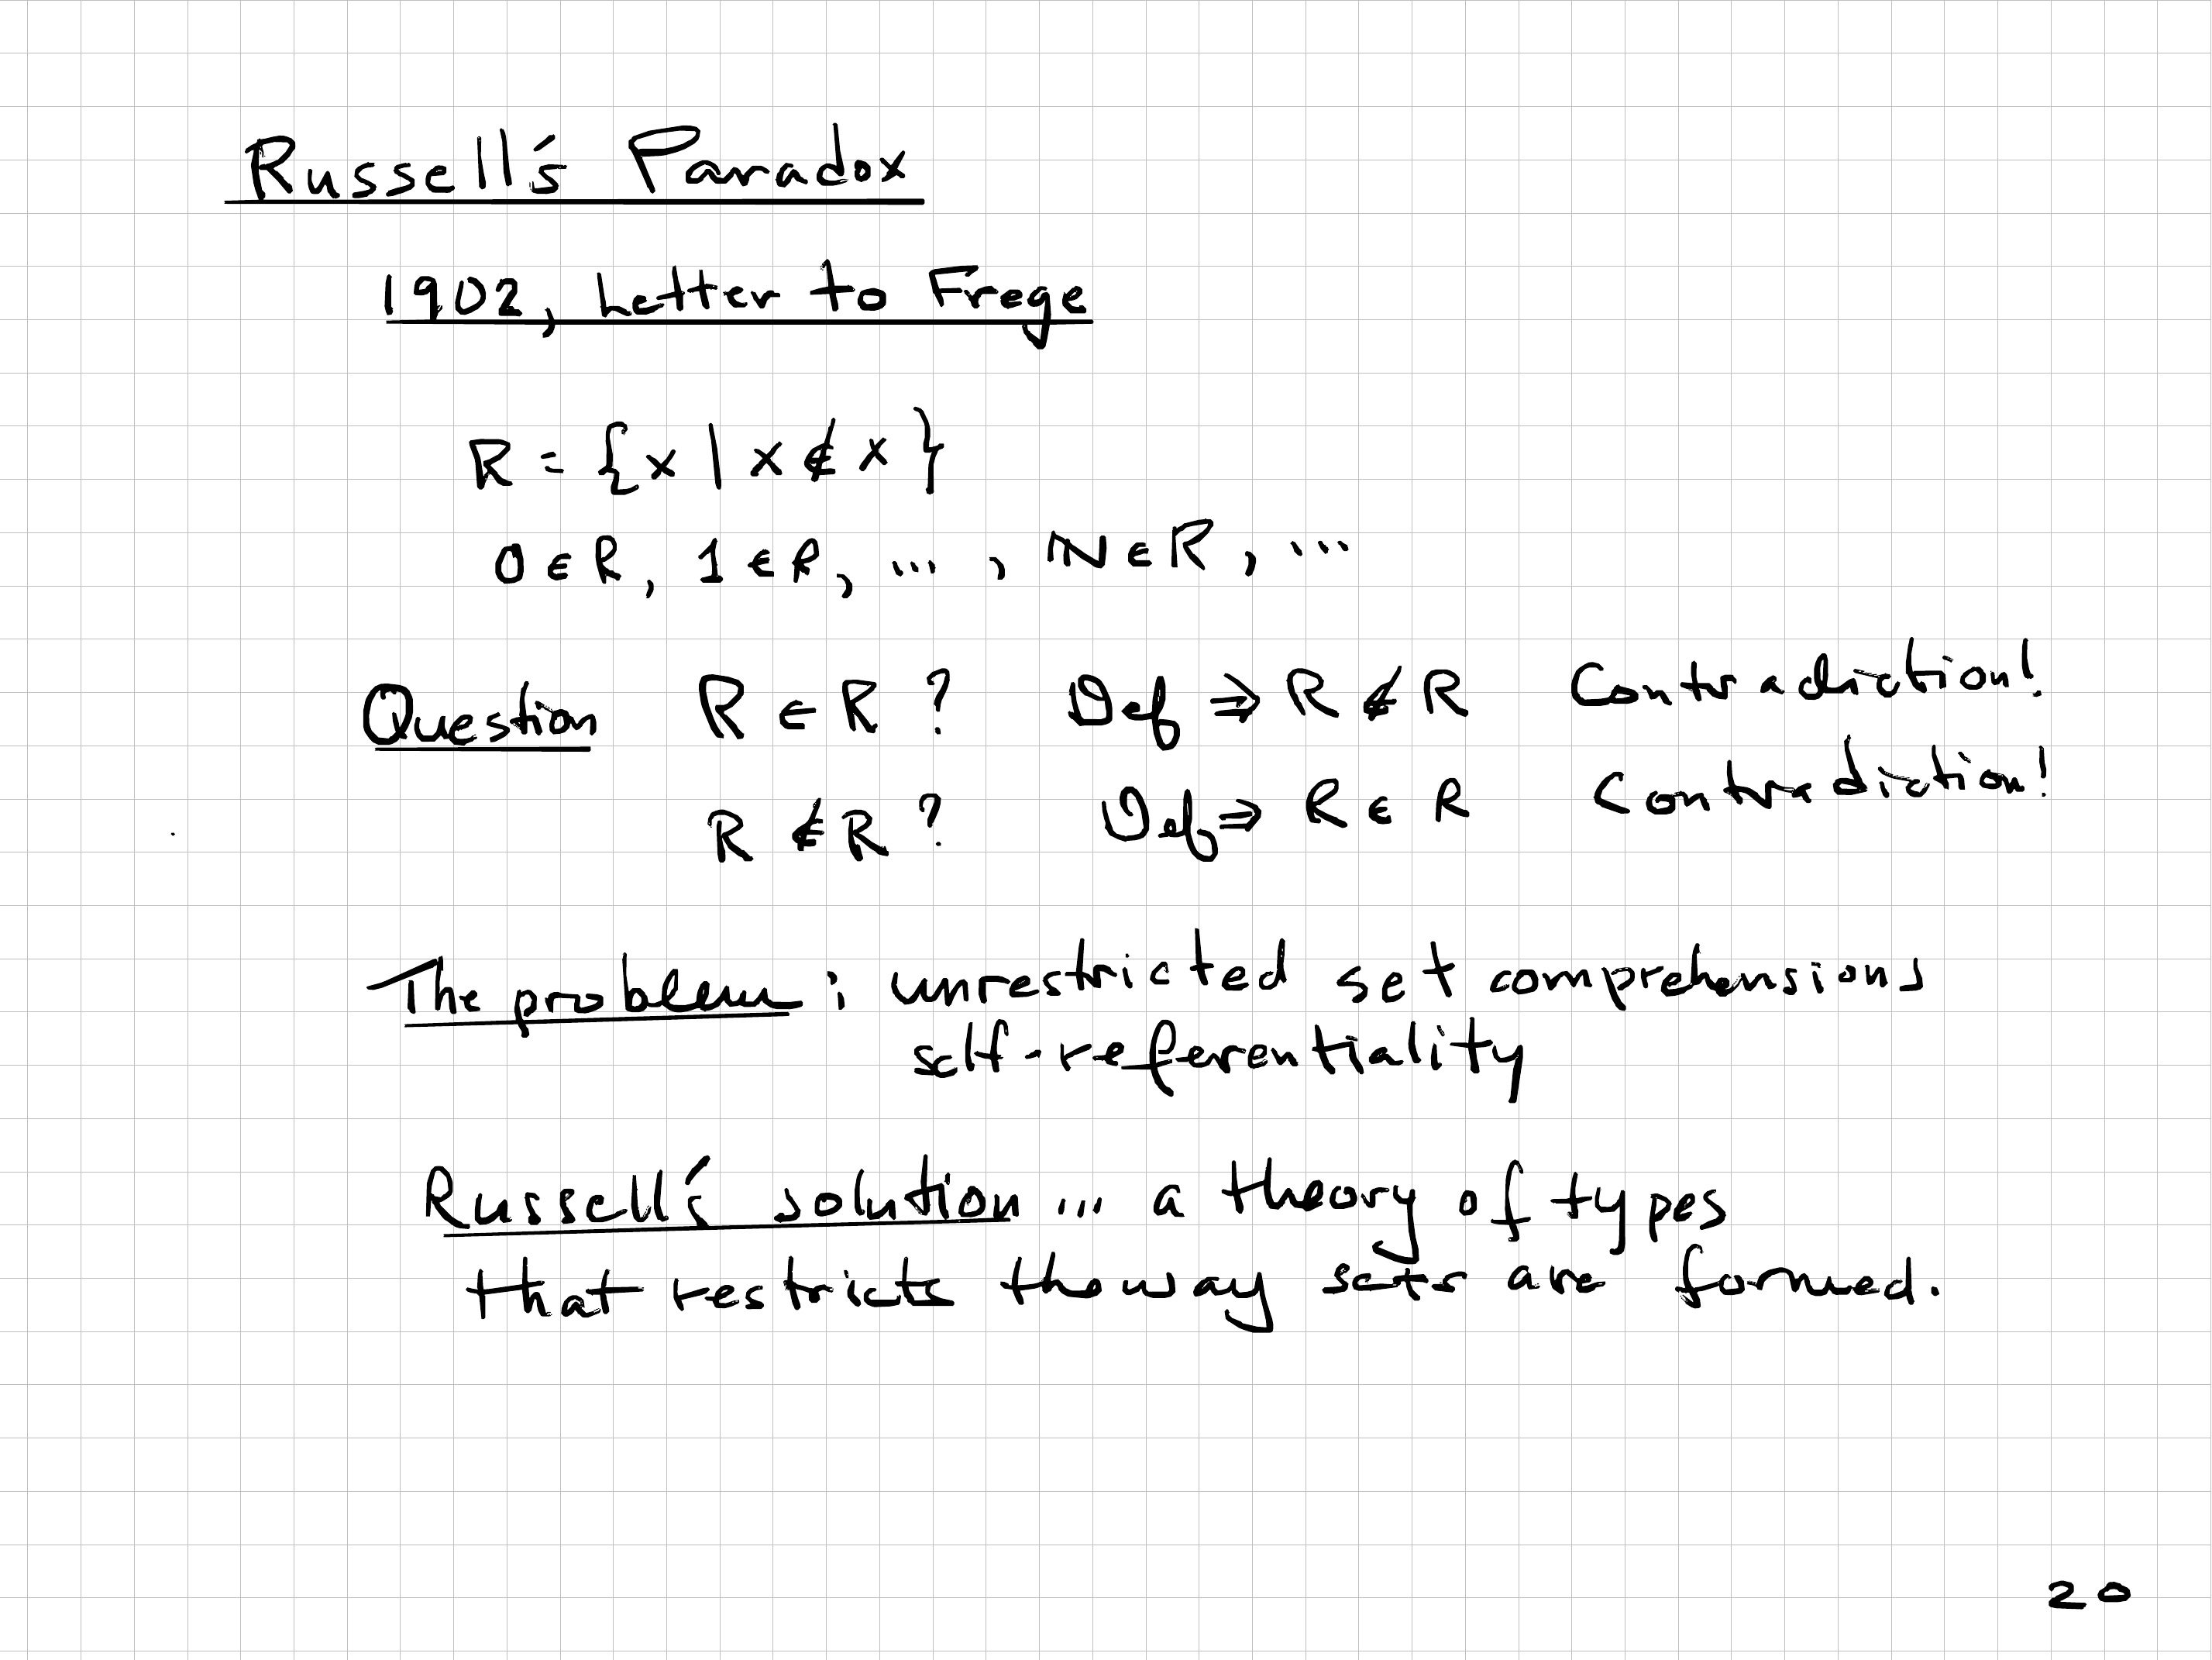 Russell's Paradox
1902, Letter to Frege
R = {x | x ∉ x}
0 ∈ R, 1 ∈ R, ... , ℕ ∈ R, ...
Question R ∈ R ? Def ⇒ R ∉ R Contradiction!
R ∉ R ? Def ⇒ R ∈ R Contradiction!
The problem : unrestricted set comprehensions
self-referentiality
Russell's solution ... a theory of types
that restricts the way sets are formed.
20